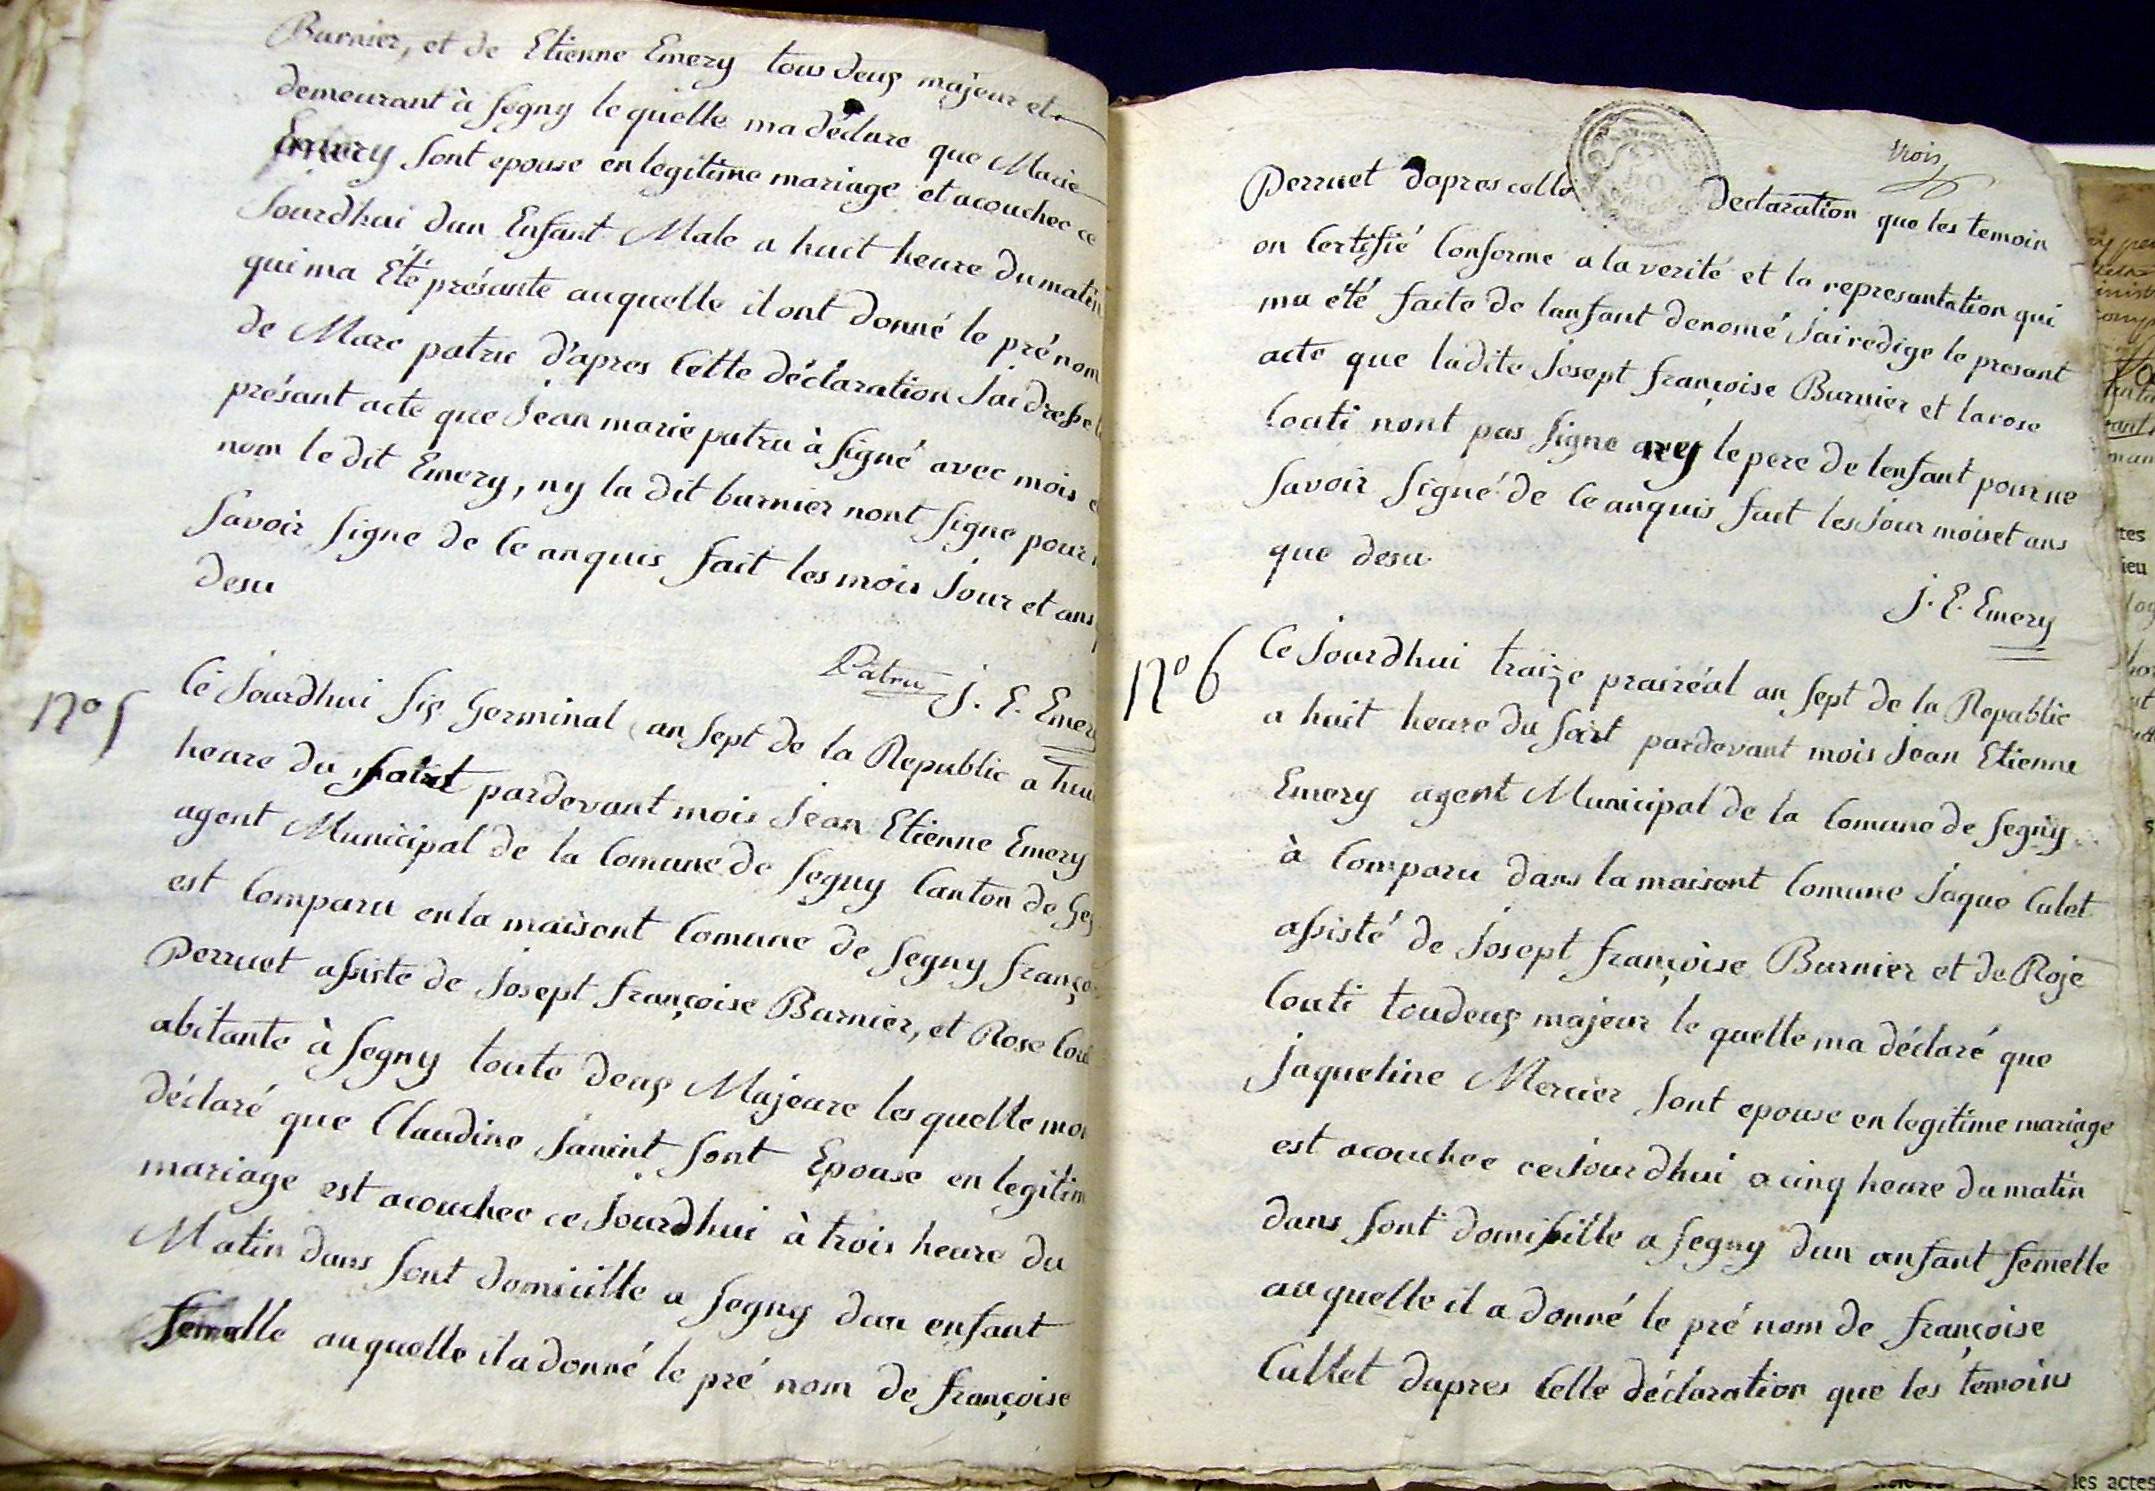 Burnier, et de Etienne Emery tous deux majeur et
demeurant à Segny le quelle ma déclare que Marie
Emery sont epouse en legitime mariage et acouchee ce
Jourdhui dun Enfant Male a huit heure du matin
qui ma Eté présante auquelle il ont donné le prénom
de Marc patru d'apres Cette déclaration Jai dresse l
présant acte que Jean marie patru à signé avec mois e
nom le dit Emery, ny la dit burnier nont signe pour
savoir signe de Ce anquis fait les mois Jour et ans
desu
Patru J. E. Emer
No 5
Ce Jourdhui six Germinal an sept de la Republic a hui
heure du soirt pardevant mois Jean Etienne Emery
agent Municipal de la Comune de Segny Canton de Gex
est Comparu en la maisont Comune de Segny franço
Perruet assiste de Josept françoise Burnier, et Rose Cou
abitante à Segny toute deux Majeure les quelle mon
déclaré que Claudine Janint sont Epouse en legitim
mariage est acouchee ce Jourdhui à trois heure du
Matin dans sont domicille a Segny dun enfant
femelle auquelle il a donné le pré nom de françoise
trois
Perruet dapres celle declaration que les temoin
on Certifié Conforme a la verité et la represantation qui
ma été faite de lanfant denomé Jai redige le presant
acte que ladite Josept françoise Burnier et la rose
Couti nont pas signe le pere de lenfant pour ne
savoir signé de Ce anquis fait les Jour mois et ans
que desu
J. E. Emery
No 6
Ce Jourdhui traize prairéal an sept de la Republic
a huit heure du soirt pardevant mois Jean Etienne
Emery agent Municipal de la Comune de Segny
à Comparu dans la maisont Comune Jaque Culet
assisté de Josept françoise Burnier et de Roje
Couti toudeux majeur le quelle ma déclaré que
Jaqueline Mercier sont epouse en legitime mariage
est acouchee ce Jourdhui a cinq heure du matin
dans sont domisille a Segny dun anfant femelle
auquelle il a donné le pré nom de françoise
Cullet dapres Celle déclaration que les temoins
les actes